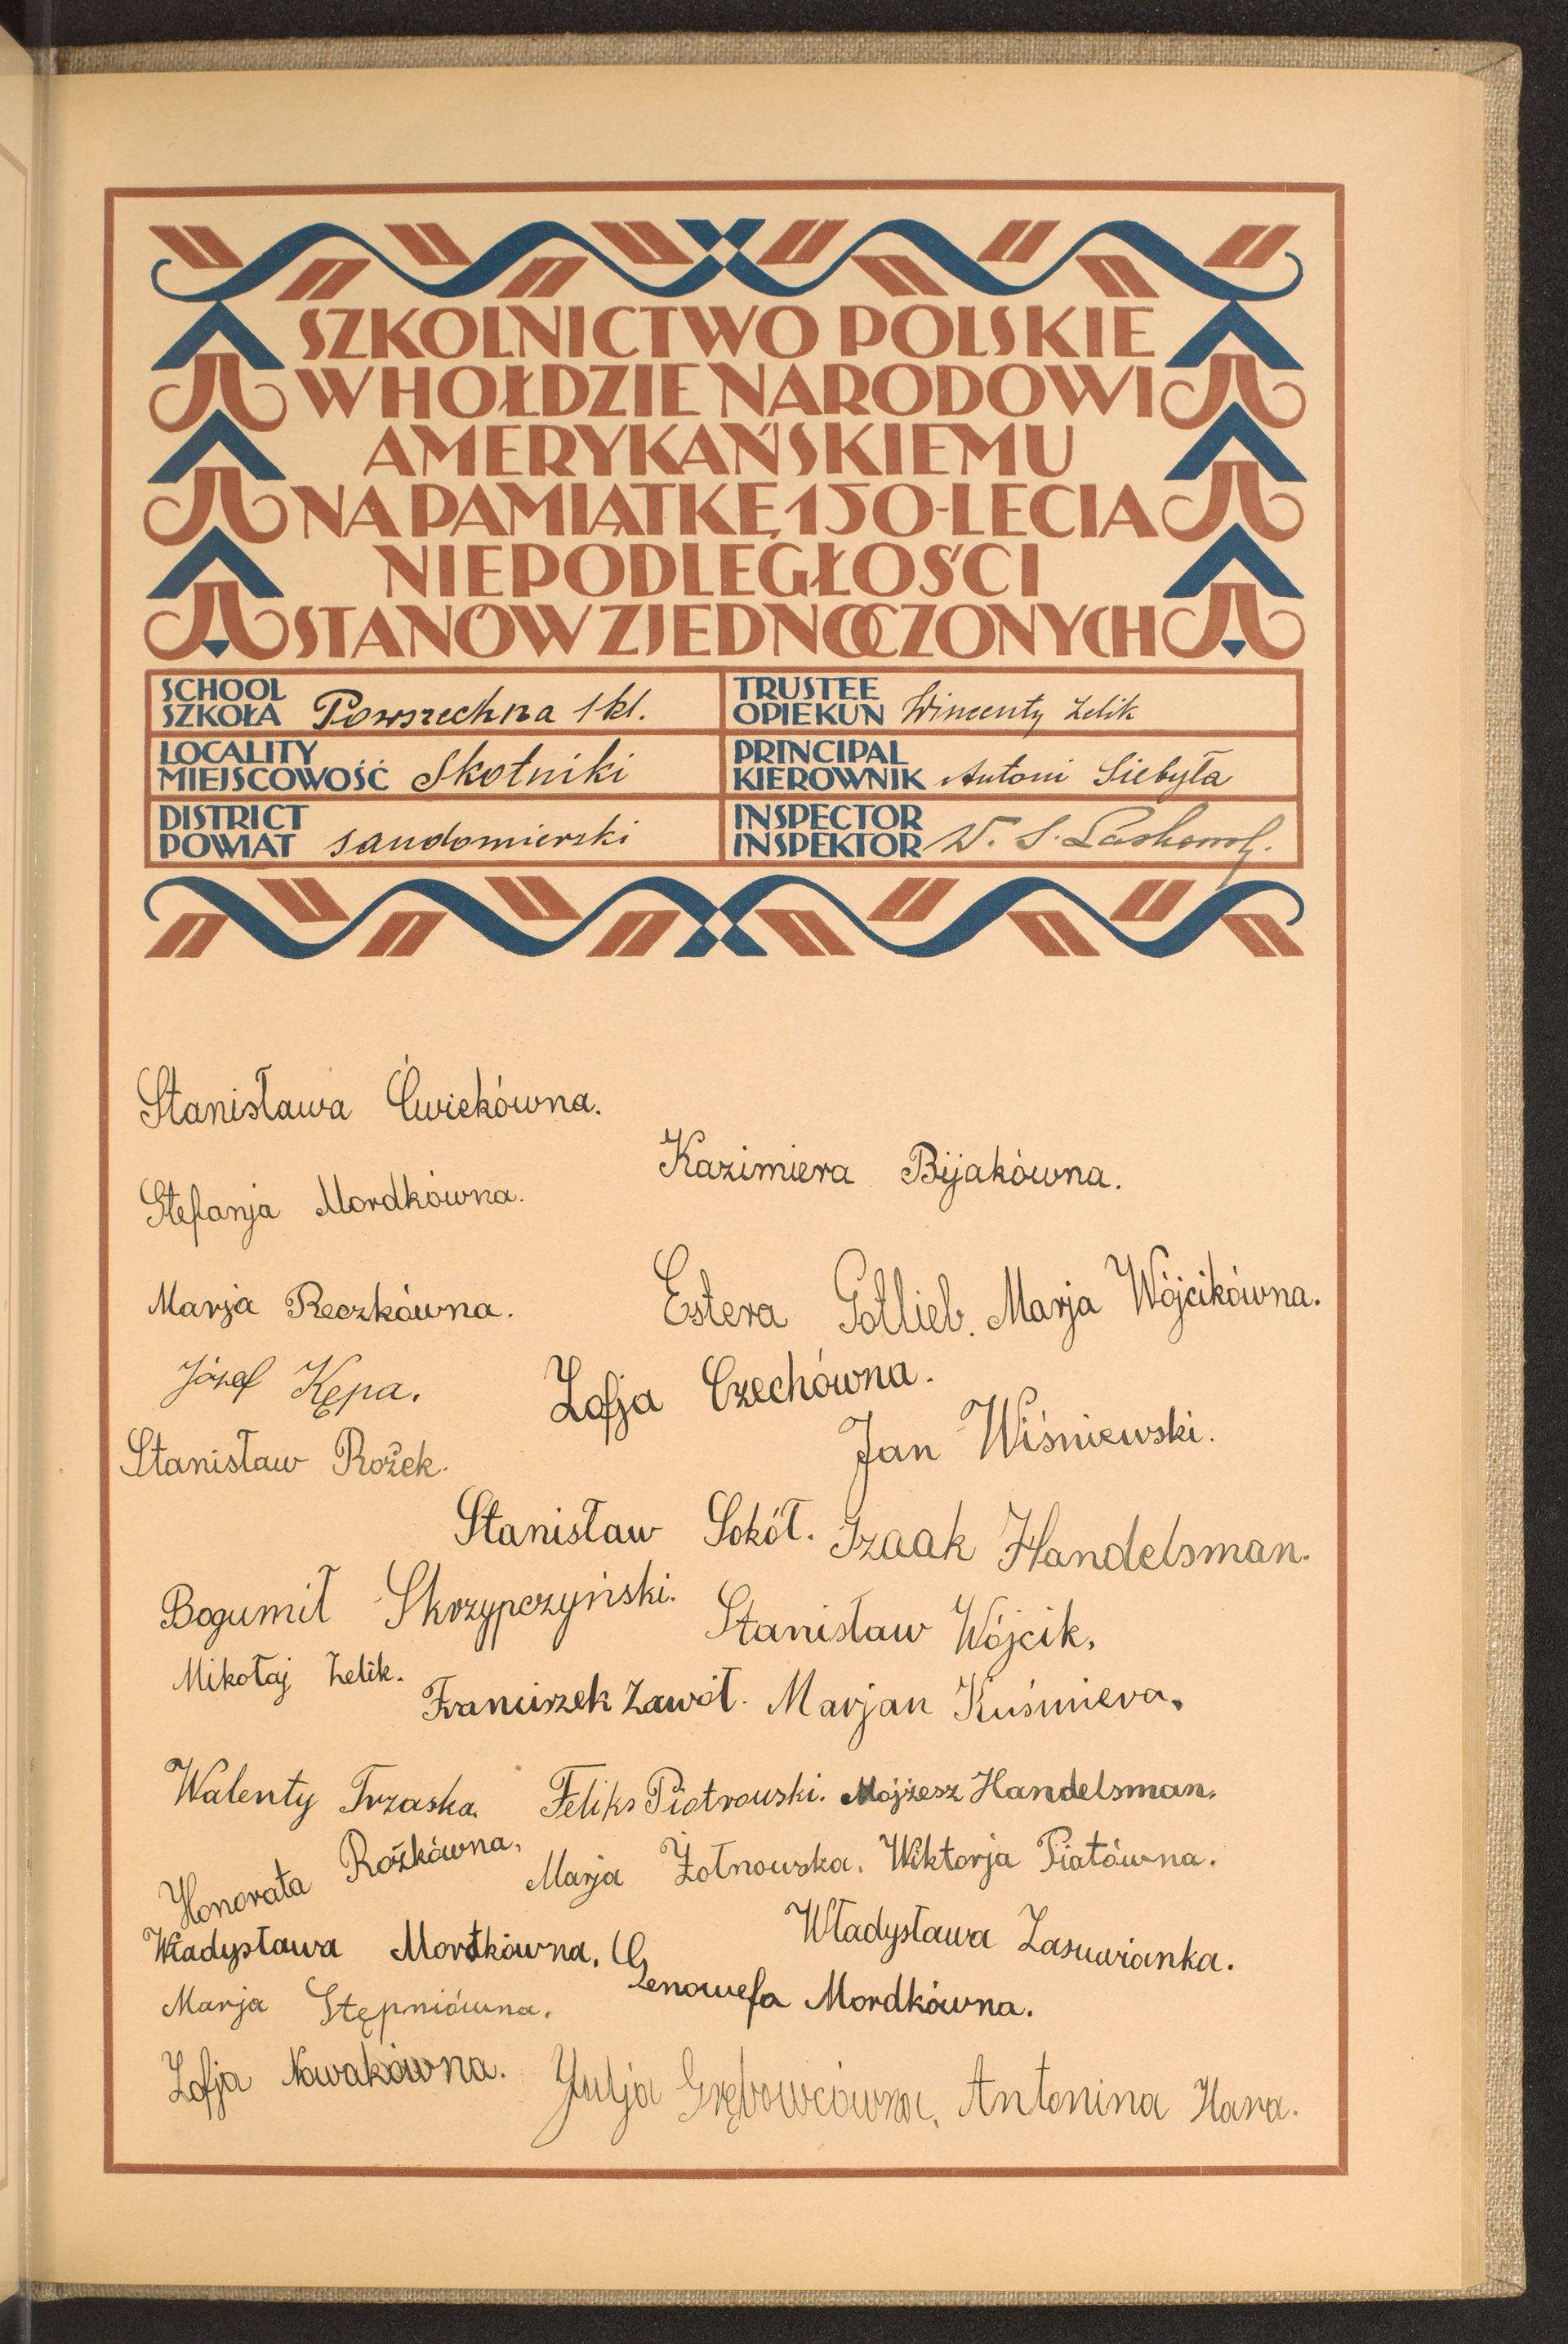 SZKOLNICTWO POLSKIE
W HOŁDZIE NARODOWI
AMERYKAŃSKIEMU
NA PAMIĄTKĘ 150-LECIA
NIEPODLEGŁOŚCI
STANÓW ZJEDNOCZONYCH
SCHOOL
SZKOŁA Powszechna 1 kl.
TRUSTEE
OPIEKUN Wincenty Zelik
LOCALITY
MIEJSCOWOŚĆ Skotniki
PRINCIPAL
KIEROWNIK Antoni Siebyła
DISTRICT
POWIAT sandomierski
INSPECTOR
INSPEKTOR W. S.
Stanisława Ćwiekówna.
Kazimiera Bijakówna.
Stefanja Mordkówna.
Marja Reczkówna.
Estera Gotlieb. Marja Wójcikówna.
Józef Kępa.
Zofja Czechówna.
Jan Wiśniewski.
Stanisław Rożek.
Stanisław Sokół. Izaak Handelsman.
Bogumił Skrzypczyński.
Stanisław Wójcik.
Mikołaj Zelik.
Franciszek Zawół. Marjan Kuśmiera.
Walenty Trzaska. Feliks Piotrowski. Mojżesz Handelsman.
Honorata Rożkówna. Marja Żołnowska. Wiktorja Piatówna.
Władysława Mordkówna.
Władysława Zasuwianka.
Genowefa Mordkówna.
Marja Stępniówna.
Zofja Nowakówna. Julja Grębowcówna. Antonina Hara.